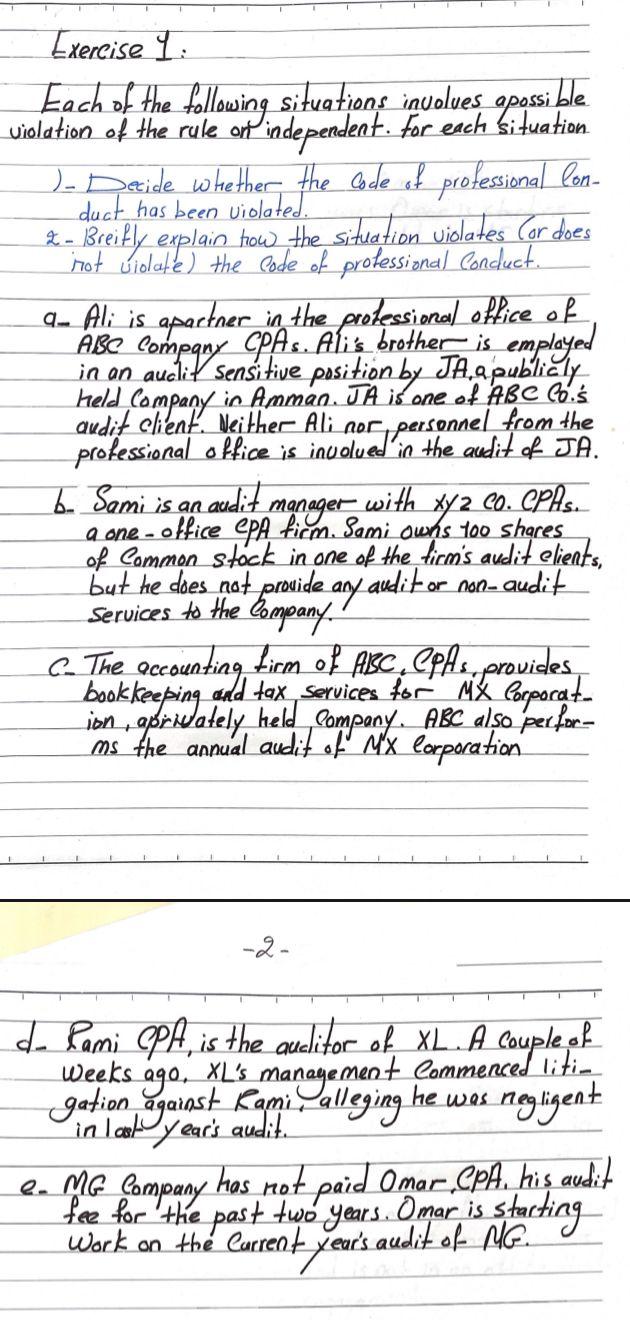 Exercise 1:
Each of the following situations involves apossible
violation of the rule on independent. For each situation
1- Decide whether the Code of professional Con-
duct has been violated.
2- Breifly explain how the situation violates (or does
not violate) the Code of professional Conduct.
a- Ali is apartner in the professional office of
ABC Company CPAs. Ali's brother is employed
in an audit sensitive position by JA, a publicly
held Company in Amman. JA is one of ABC Co.'s
audit client. Neither Ali nor personnel from the
professional office is involved in the audit of JA.
b- Sami is an audit manager with xyz co. CPAs.
a one-office CPA firm. Sami owns 100 shares
of Common stock in one of the firm's audit clients,
but he does not provide any audit or non-audit
services to the Company.
C- The accounting firm of ABC, CPAs, provides
bookkeeping and tax services for MX Corporat-
ion, aprivately held Company. ABC also perfor-
ms the annual audit of MX Corporation
-2-
d- Rami CPA, is the auditor of XL. A Couple of
weeks ago, XL's management Commenced liti-
gation against Rami, alleging he was negligent
in last year's audit.
e- MG Company has not paid Omar, CPA, his audit
fee for the past two years. Omar is starting
Work on the Current year's audit of MG.